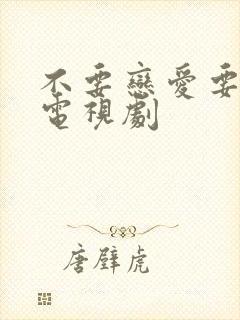 不要戀愛要
電視劇
唐壁虎